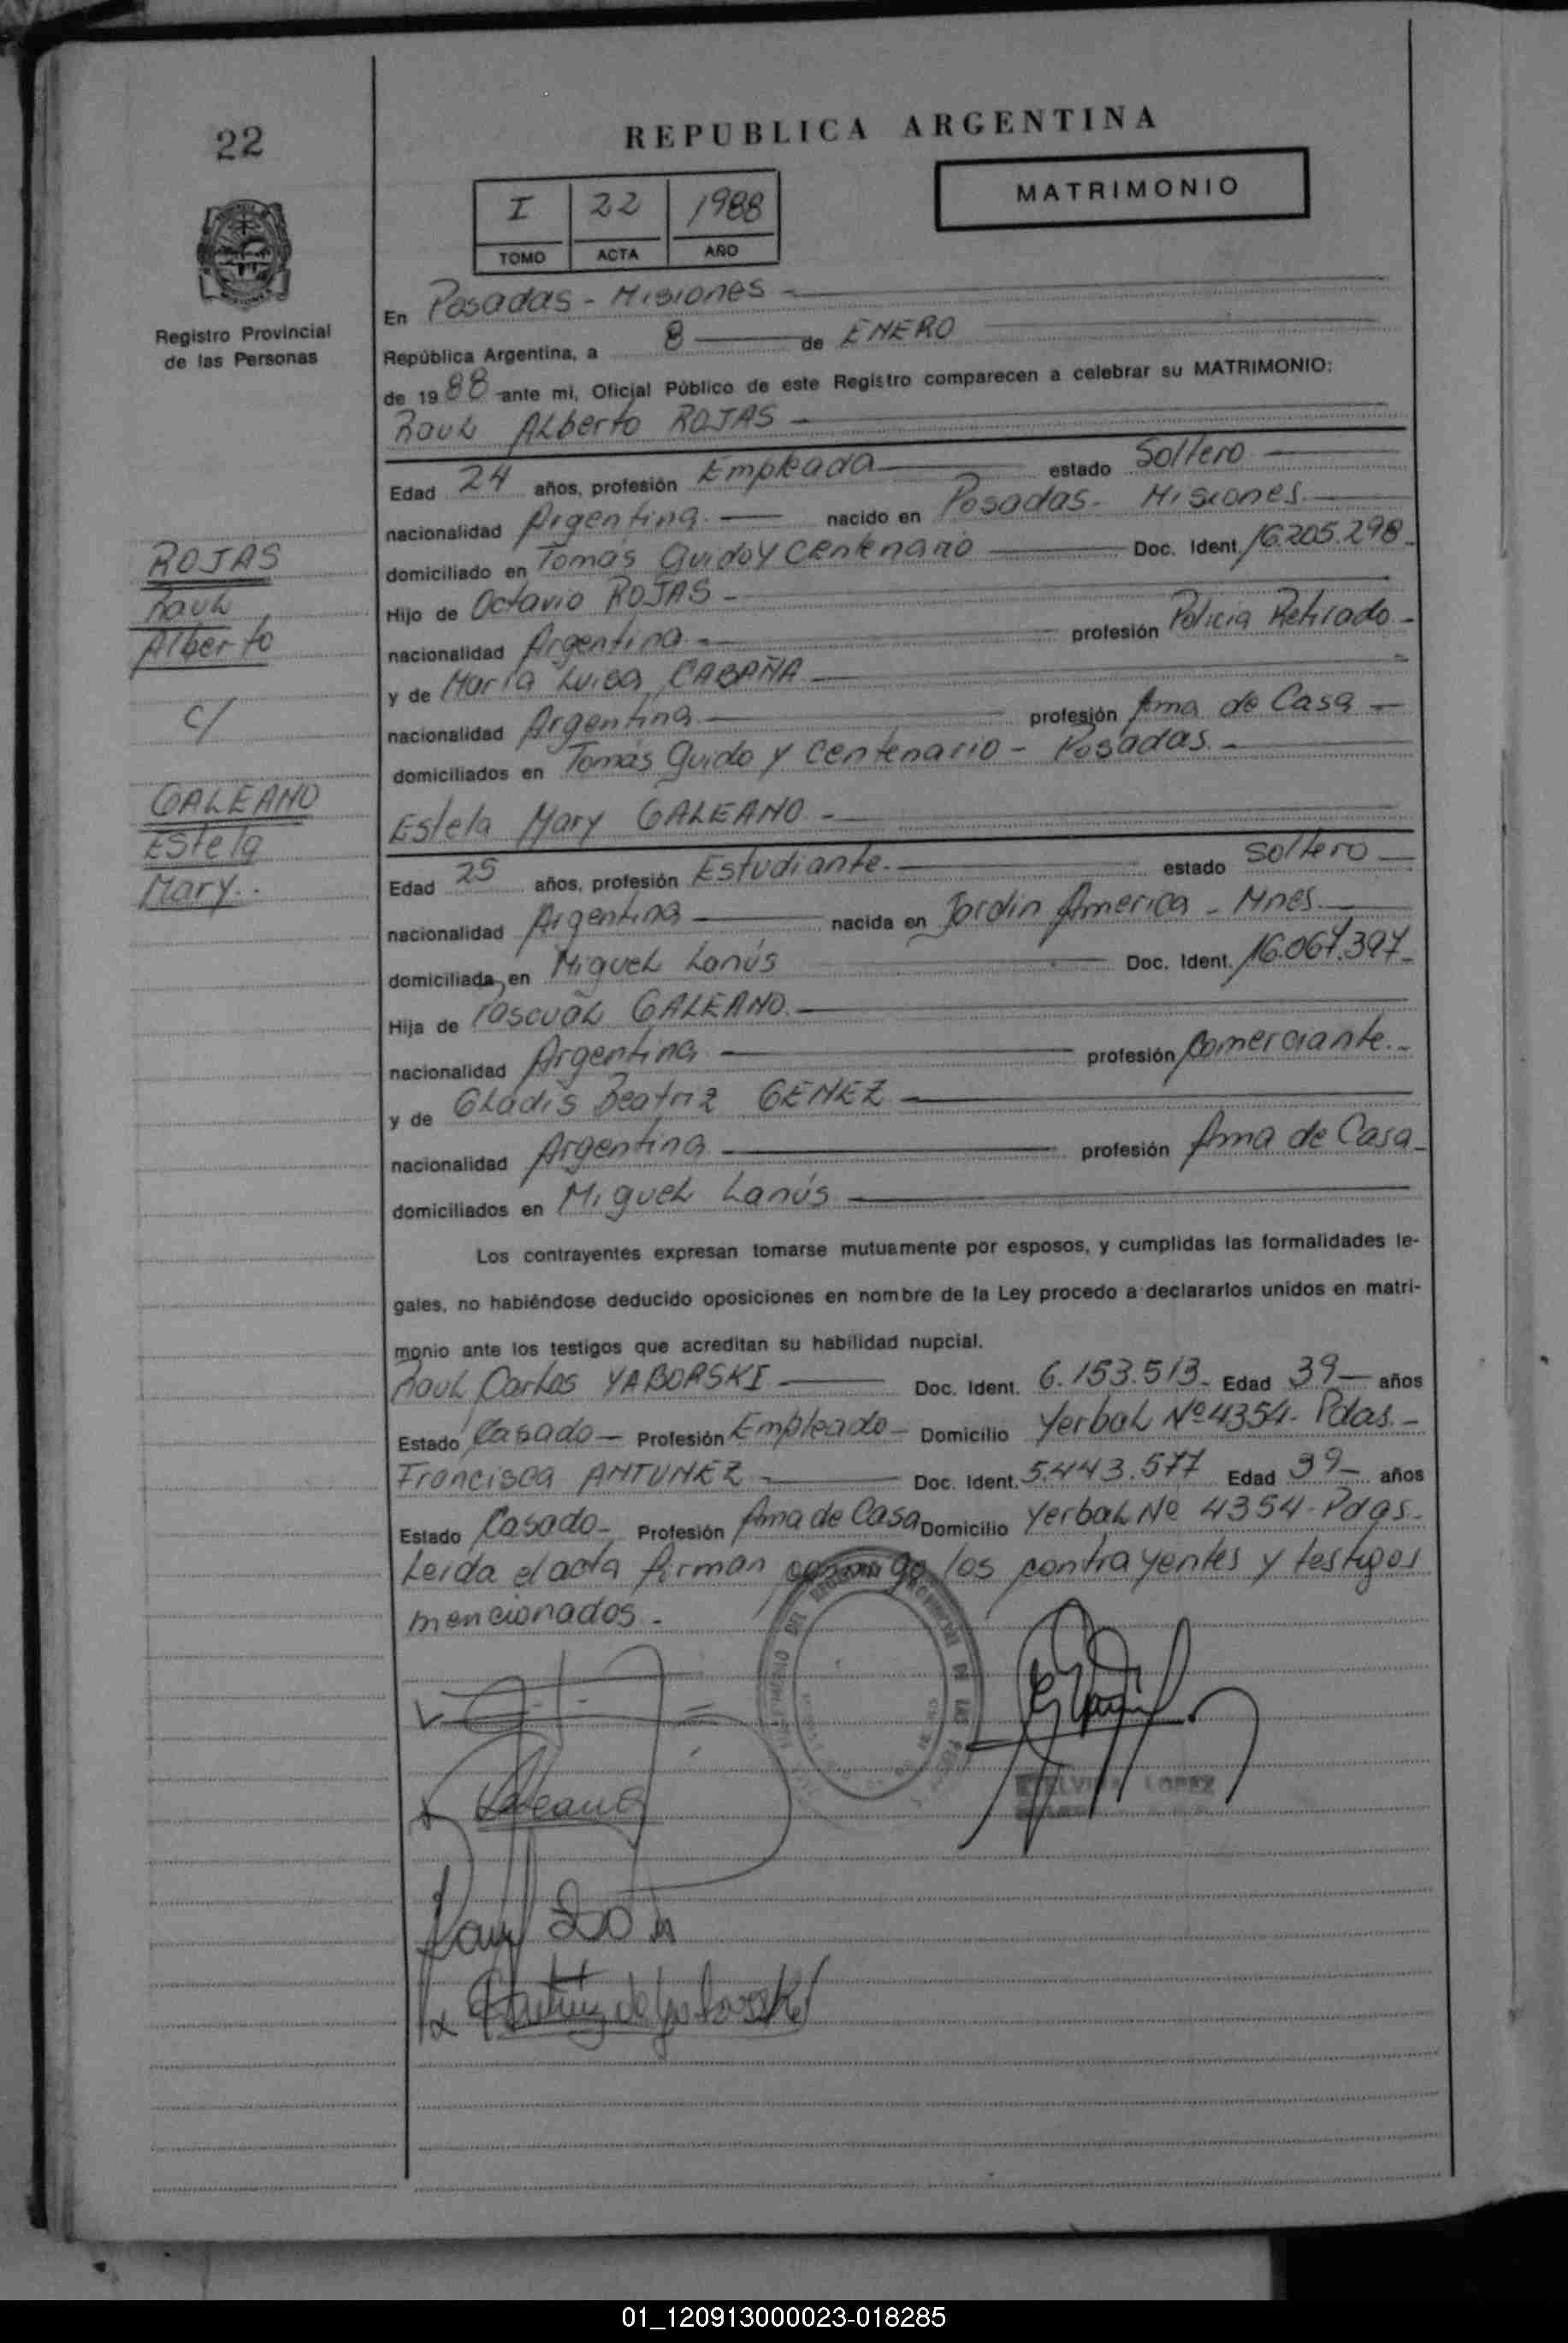 22
REPUBLICA ARGENTINA
MATRIMONIO
I 22 1988
TOMO ACTA AÑO
Registro Provincial
de las Personas
En Posadas - Misiones -
República Argentina, a 8 de ENERO
de 1988 ante mi, Oficial Público de este Registro comparecen a celebrar su MATRIMONIO:
Raul Alberto ROJAS
Edad 24 años, profesión Empleada estado Soltero
nacionalidad Argentina. nacido en Posadas- Misiones.
domiciliado en Tomás Guido y Centenario Doc. Ident. 16.205.298.
Hijo de Octavio ROJAS -
nacionalidad Argentina. profesión Policia Retirado -
y de María Luisa CABAÑA
nacionalidad Argentina profesión Ama de Casa
domiciliados en Tomás Guido y Centenario - Posadas. -
ROJAS
Raul
Alberto
c/
GALEANO
Estela
Mary.
Estela Mary GALEANO -
Edad 25 años, profesión Estudiante. estado soltero
nacionalidad Argentina nacida en Jardin America - Mnes.
domiciliada, en Miguel Lanús Doc. Ident. 16.067.397
Hija de Pascual GALEANO.
nacionalidad Argentina profesión Comerciante. -
y de Gladis Beatriz GENEZ
nacionalidad Argentina profesión Ama de Casa
domiciliados en Miguel Lanús
Los contrayentes expresan tomarse mutuamente por esposos, y cumplidas las formalidades le-
gales, no habiéndose deducido oposiciones en nombre de la Ley procedo a declararlos unidos en matri-
monio ante los testigos que acreditan su habilidad nupcial.
Raul Carlos YABORSKI Doc. Ident. 6.153.513. Edad 39 años
Estado Casado Profesión Empleado Domicilio Yerbal Nº 4354 - Pdas. -
Francisca ANTUNEZ Doc. Ident. 5.443.577 Edad 39 años
Estado Casado - Profesión Ama de Casa Domicilio Yerbal Nº 4354 - Pdas.
Leida el acta firman conmigo los contrayentes y testigos
mencionados -
Galeano
LOPEZ
01_120913000023-018285